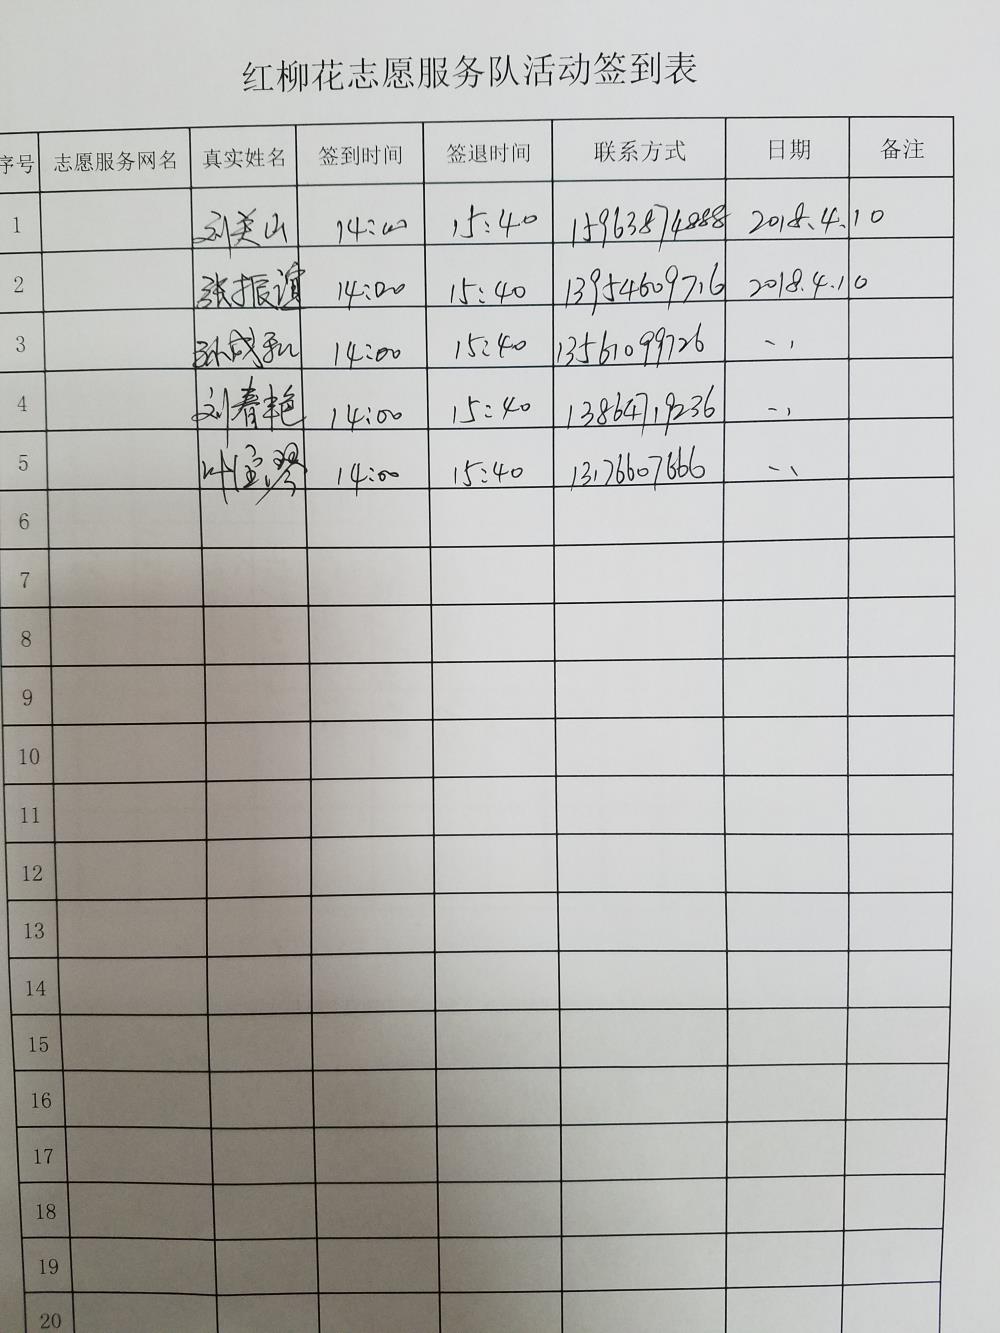 红柳花志愿服务队活动签到表
序号 志愿服务网名 真实姓名 签到时间 签退时间 联系方式 日期 备注
1 刘美山 14:00 15:40 15963874888 2018.4.10
2 张振谊 14:00 15:40 13954609716 2018.4.10
3 孙成 14:00 15:40 13561099726 、、
4 刘春艳 14:00 15:40 13864719236 、、
5 叶宝琴 14:00 15:40 13176607666 、、
6
7
8
9
10
11
12
13
14
15
16
17
18
19
20